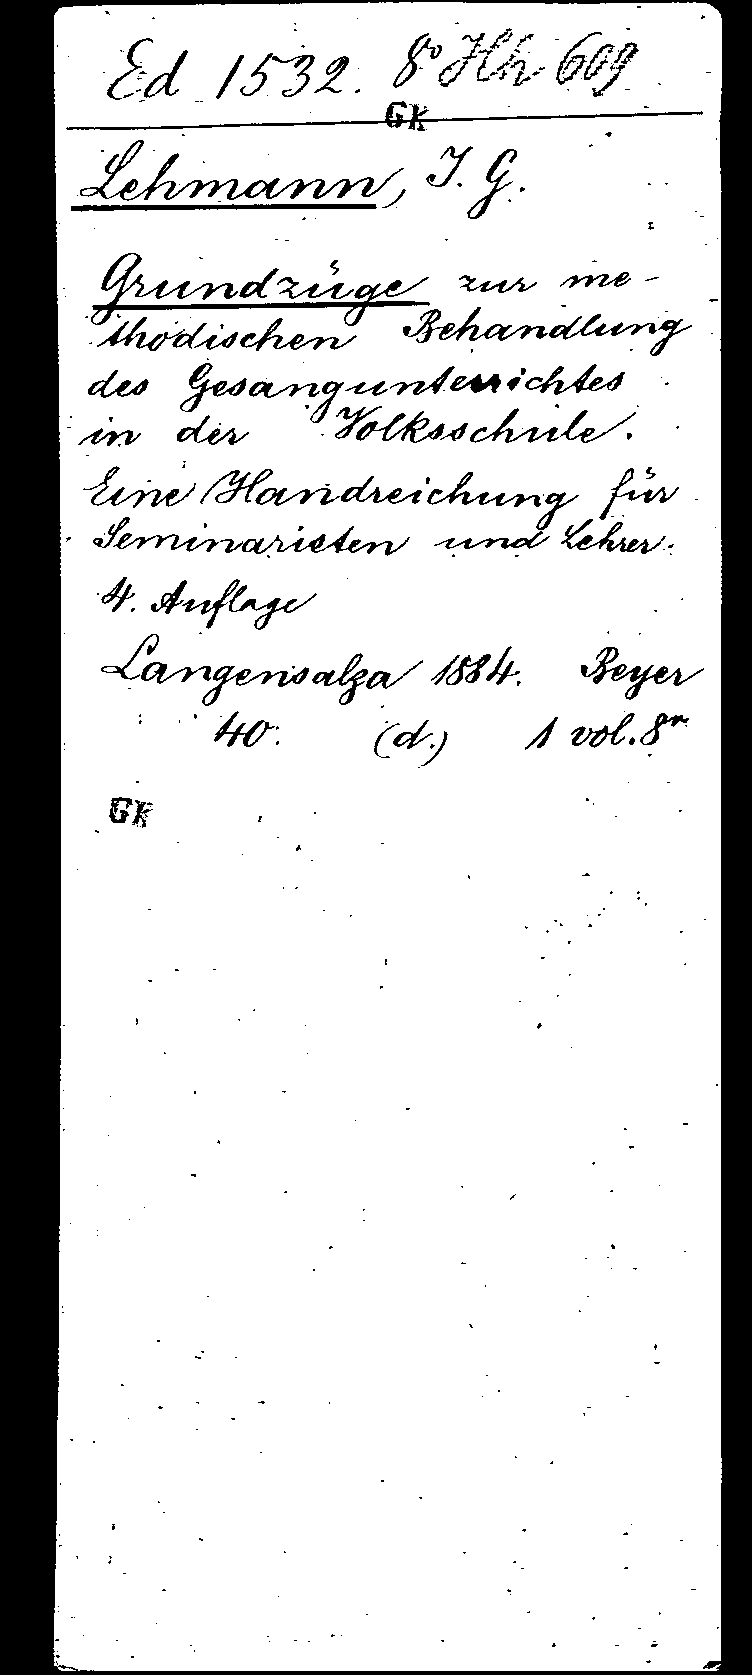 Ed 1532. 8° Hh 609
GK
Lehmann, J. G.
Grundzüge zur me-
thodischen Behandlung
des Gesangunterrichtes
in der Volksschule.
Eine Handreichung für
Seminaristen und Lehrer.
4. Auflage
Langensalza 1884. Beyer
40. (d.) 1 vol. 8°
GK